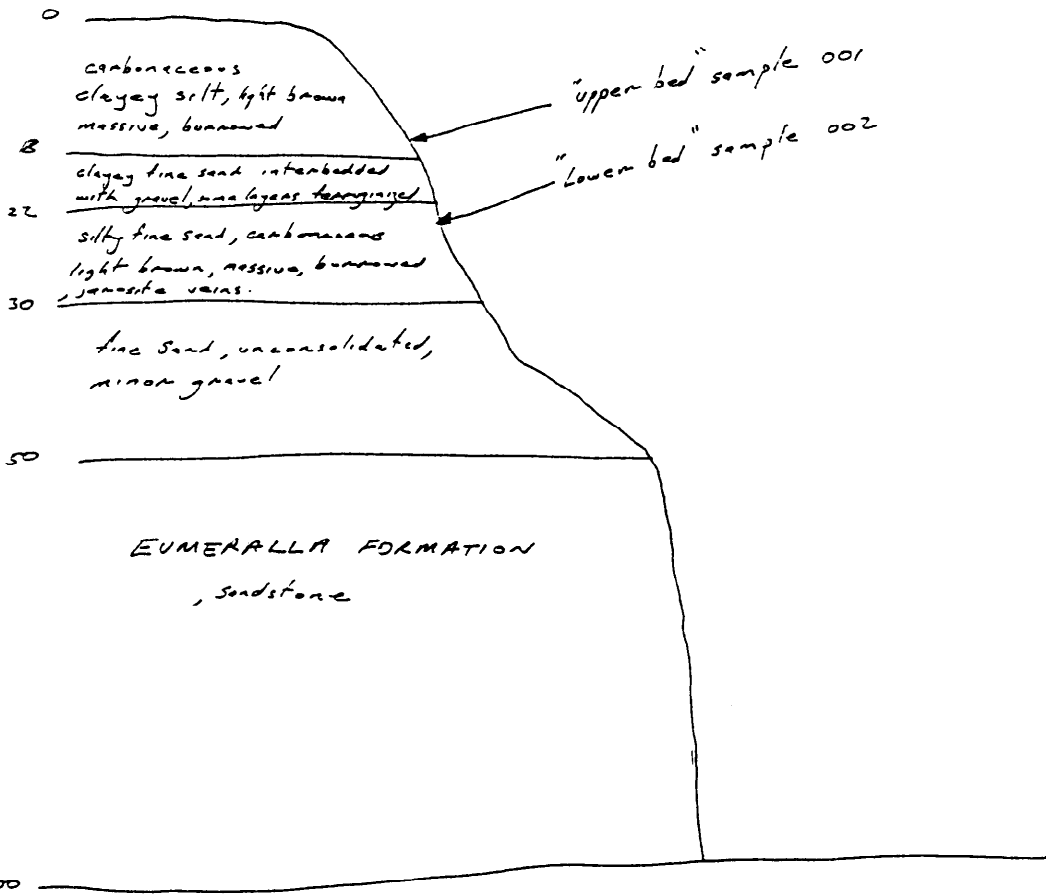 0
carbonaceous
clayey silt, light brown
massive, burrowed
"upper bed" sample 001
"Lower bed" sample 002
clayey fine sand interbedded
with gravel, some layers ferruginized
22
silty fine sand, carbonaceous
light brown, massive, burrowed
, jarosite veins.
30
fine sand, unconsolidated,
minor gravel
50
EUMERALLA FORMATION
, sandstone